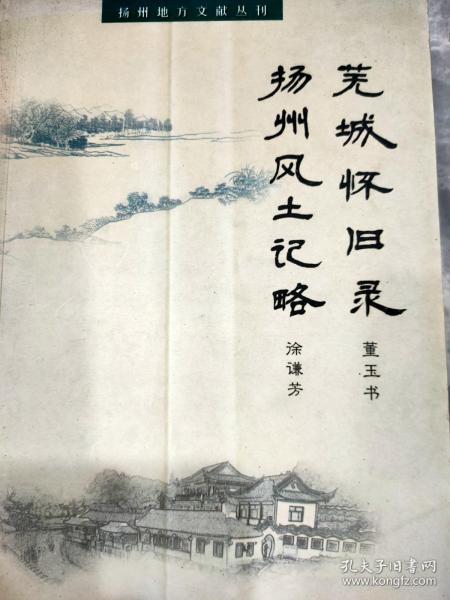 扬州地方文献丛刊
芜城怀旧录
董玉书
扬州风土记略
徐谦芳
孔夫子旧书网
www.kongfz.com